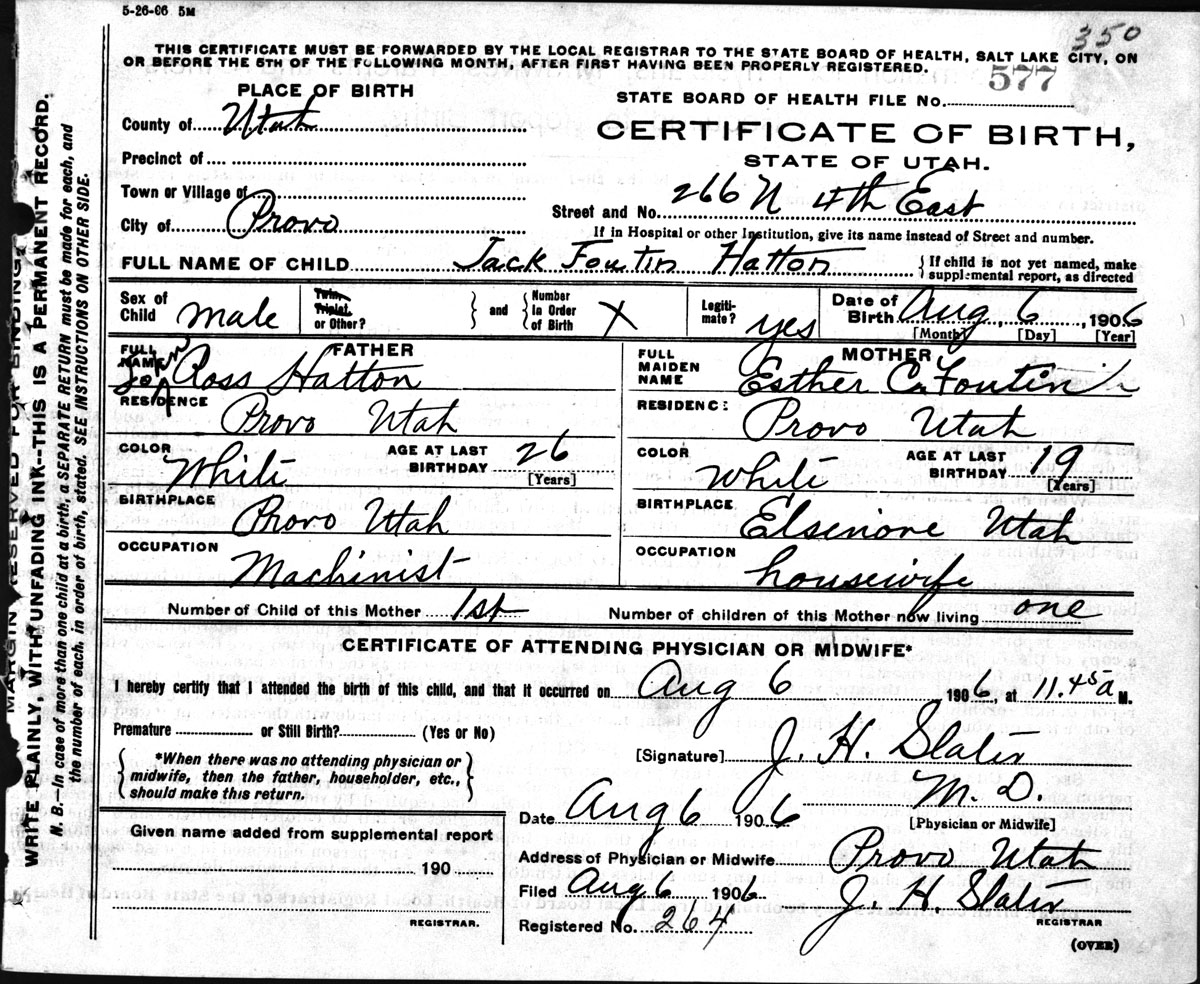 5-26-06 5M
350
THIS CERTIFICATE MUST BE FORWARDED BY THE LOCAL REGISTRAR TO THE STATE BOARD OF HEALTH, SALT LAKE CITY, ON
OR BEFORE THE 5TH OF THE FOLLOWING MONTH, AFTER FIRST HAVING BEEN PROPERLY REGISTERED.
577
PLACE OF BIRTH
STATE BOARD OF HEALTH FILE No.
County of Utah
CERTIFICATE OF BIRTH,
STATE OF UTAH.
Precinct of
Town or Village of
Street and No. 266 N 4th East
City of Provo
If in Hospital or other Institution, give its name instead of Street and number.
FULL NAME OF CHILD Jack Foutin Hatton { If child is not yet named, make
supplemental report, as directed
Sex of Child male Twin, Triplet, or Other? } and { Number In Order of Birth X Legitimate? yes Date of Birth Aug 6, 1906
[Month] [Day] [Year]
FATHER
FULL NAME Ross Hatton
RESIDENCE Provo Utah
COLOR White AGE AT LAST BIRTHDAY 26 [Years]
BIRTHPLACE Provo Utah
OCCUPATION Machinist
MOTHER
FULL MAIDEN NAME Esther C. Foutin
RESIDENCE Provo Utah
COLOR White AGE AT LAST BIRTHDAY 19 [Years]
BIRTHPLACE Elsinore Utah
OCCUPATION housewife
Number of Child of this Mother 1st Number of children of this Mother now living one
CERTIFICATE OF ATTENDING PHYSICIAN OR MIDWIFE*
I hereby certify that I attended the birth of this child, and that it occurred on Aug 6 1906, at 11.45 a M.
Premature or Still Birth? (Yes or No)
[Signature] J. H. Slater
M. D.
[Physician or Midwife]
{ *When there was no attending physician or
midwife, then the father, householder, etc.,
should make this return. }
Date Aug 6 1906
Given name added from supplemental report
190
REGISTRAR.
Address of Physician or Midwife Provo Utah
Filed Aug 6 1906 J. H. Slater
REGISTRAR
Registered No. 264
(OVER)
MARGIN RESERVED FOR BINDING.
WRITE PLAINLY, WITH UNFADING INK--THIS IS A PERMANENT RECORD.
N. B.--In case of more than one child at a birth, a SEPARATE RETURN must be made for each, and
the number of each, in order of birth, stated. SEE INSTRUCTIONS ON OTHER SIDE.